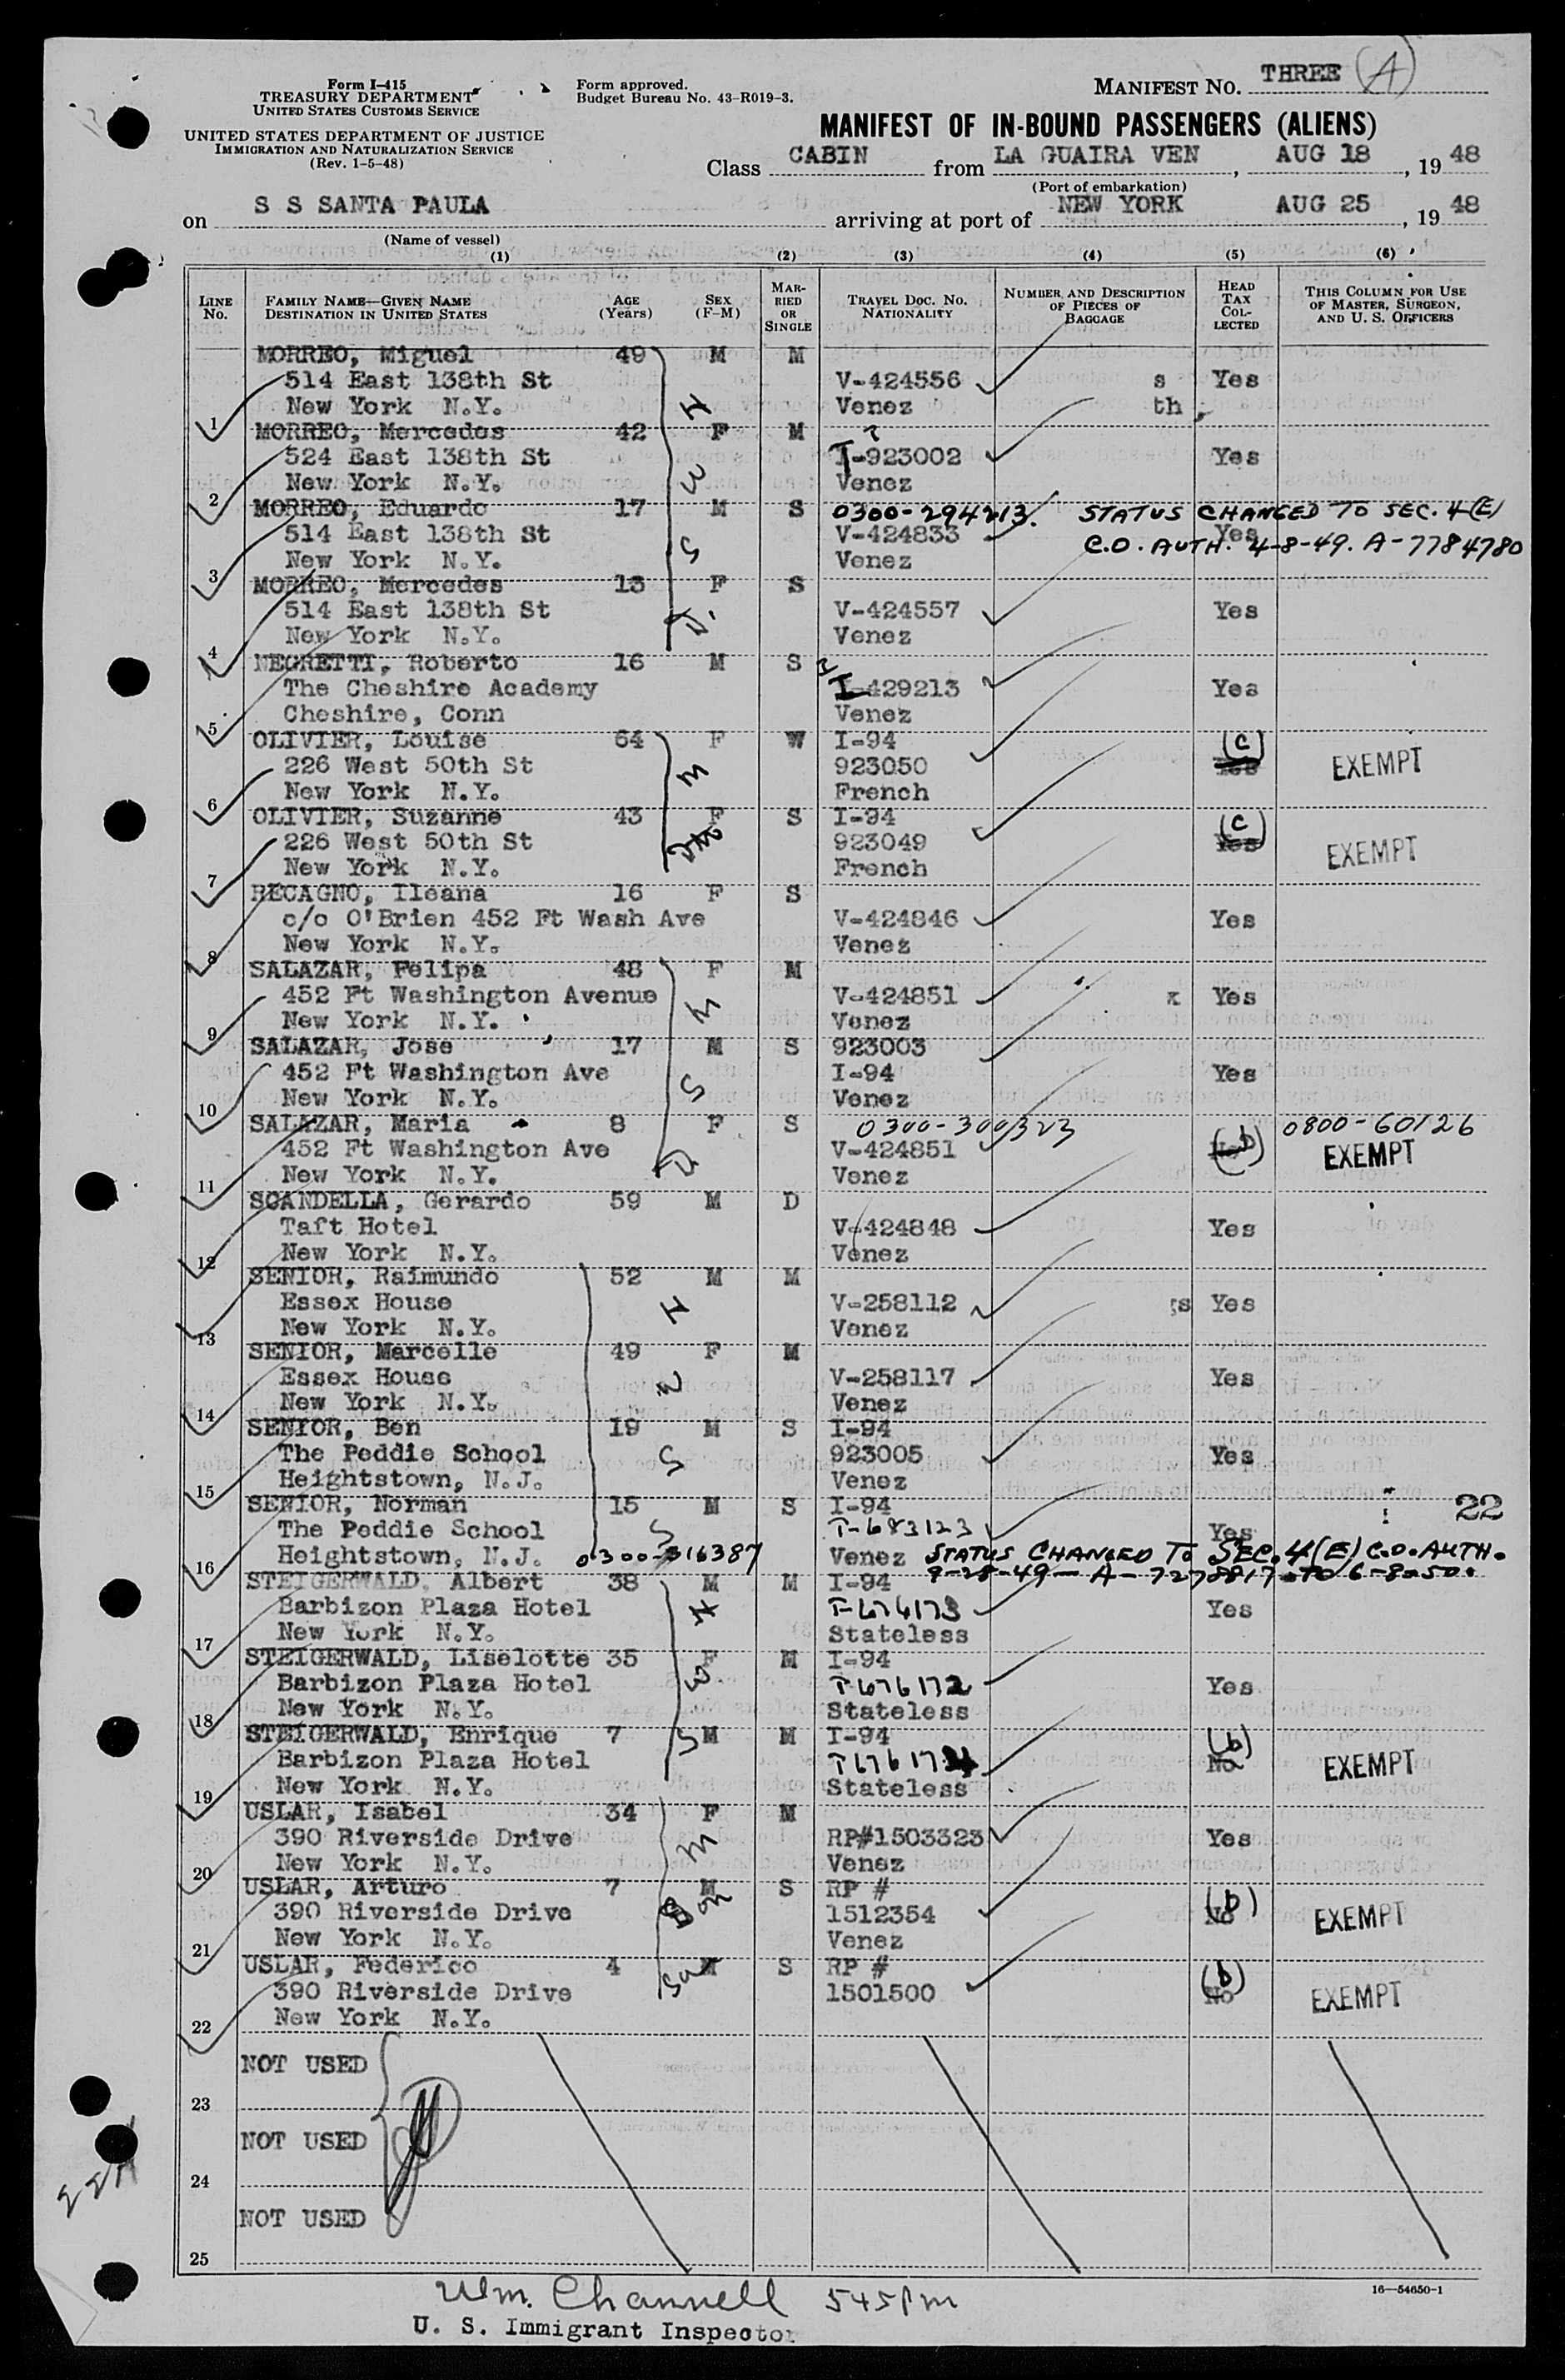 Form I-415
TREASURY DEPARTMENT
UNITED STATES CUSTOMS SERVICE
UNITED STATES DEPARTMENT OF JUSTICE
IMMIGRATION AND NATURALIZATION SERVICE
(Rev. 1-5-48)
Form approved.
Budget Bureau No. 43-R019-3.
MANIFEST NO. THREE (A)
MANIFEST OF IN-BOUND PASSENGERS (ALIENS)
Class CABIN from LA GUAIRA VEN, AUG 18, 19 48
(Port of embarkation)
on S S SANTA PAULA arriving at port of NEW YORK AUG 25, 19 48
(Name of vessel)
(1) (2) (3) (4) (5) (6)
LINE No. FAMILY NAME—GIVEN NAME DESTINATION IN UNITED STATES AGE (Years) SEX (F-M) MARRIED OR SINGLE TRAVEL DOC. NO. NATIONALITY NUMBER AND DESCRIPTION OF PIECES OF BAGGAGE HEAD TAX COLLECTED THIS COLUMN FOR USE OF MASTER, SURGEON, AND U. S. OFFICERS
MORREO, Miguel 49 M M
514 East 138th St V-424556 s Yes
1 New York N.Y. H Venez th
MORREO, Mercedes 42 F M
524 East 138th St I-923002 Yes
2 New York N.Y. W Venez
MORREO, Eduardo 17 M S 0300-294213. STATUS CHANGED TO SEC. 4(E)
514 East 138th St V-424833 Yes C.O. AUTH. 4-8-49. A-7784780
3 New York N.Y. S Venez
MORREO, Mercedes 13 F S
514 East 138th St V-424557 Yes
4 New York N.Y. D. Venez
NEGRETTI, Roberto 16 M S
The Cheshire Academy I-429213 Yes
5 Cheshire, Conn Venez
OLIVIER, Louise 64 F W I-94 (c)
226 West 50th St M 923050 Yes EXEMPT
6 New York N.Y. French
OLIVIER, Suzanne 43 F S I-94 (c)
226 West 50th St 923049 Yes EXEMPT
7 New York N.Y. French
RECAGNO, Ileana 16 F S
c/o O'Brien 452 Ft Wash Ave V-424846 Yes
8 New York N.Y. Venez
SALAZAR, Felipa 48 F M
452 Ft Washington Avenue M V-424851 x Yes
9 New York N.Y. Venez
SALAZAR, Jose 17 M S 923003
452 Ft Washington Ave S I-94 Yes
10 New York N.Y. Venez
SALAZAR, Maria 8 F S 0300-300323 0800-60126
452 Ft Washington Ave D V-424851 (b) EXEMPT
11 New York N.Y. Venez
SCANDELLA, Gerardo 59 M D
Taft Hotel V-424848 Yes
12 New York N.Y. Venez
SENIOR, Raimundo 52 M M
Essex House H V-258112 gs Yes
13 New York N.Y. Venez
SENIOR, Marcelle 49 F M
Essex House V-258117 Yes
14 New York N.Y. Venez
SENIOR, Ben 19 M S I-94
The Peddie School S 923005 Yes
15 Heightstown, N.J. Venez
SENIOR, Norman 15 M S I-94 22
The Peddie School S T-683123 Yes
16 Heightstown, N.J. 0300-316387 Venez STATUS CHANGED TO SEC. 4(E) C.O. AUTH.
9-28-49— A-7278817. TO 6-8-50.
STEIGERWALD, Albert 38 M M I-94
Barbizon Plaza Hotel H T-676173 Yes
17 New York N.Y. Stateless
STEIGERWALD, Liselotte 35 F M I-94
Barbizon Plaza Hotel W T676172 Yes
18 New York N.Y. Stateless
STEIGERWALD, Enrique 7 S M M I-94 (b)
Barbizon Plaza Hotel T676174 No EXEMPT
19 New York N.Y. Stateless
USLAR, Isabel 34 F M
390 Riverside Drive M RP#1503323 Yes
20 New York N.Y. Venez
USLAR, Arturo 7 M S RP #
390 Riverside Drive Son 1512354 (b) No EXEMPT
21 New York N.Y. Venez
USLAR, Federico 4 M S RP # (b)
390 Riverside Drive Son 1501500 No EXEMPT
22 New York N.Y.
NOT USED
23
NOT USED
24
NOT USED
25
22A
Wm. Channell 545 pm
U. S. Immigrant Inspector
16—54650-1